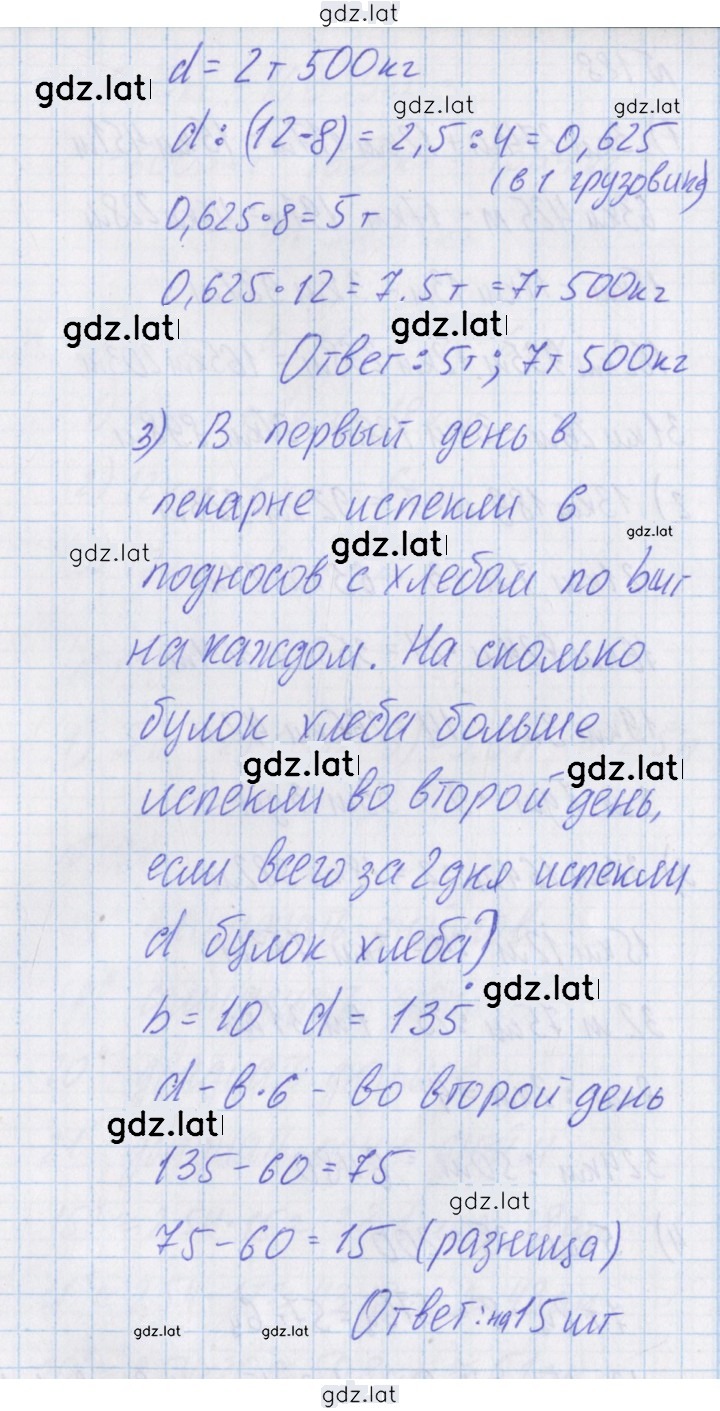 gdz.lat
d = 2т 500кг
gdz.lat
gdz.lat
gdz.lat
d : (12-8) = 2,5 : 4 = 0,625
(в 1 грузовик)
0,625·8 = 5 т
0,625·12 = 7.5т = 7т 500кг
gdz.lat
gdz.lat
Ответ: 5т; 7т 500кг
3) В первый день в
пекарне испекли 6
gdz.lat
gdz.lat
gdz.lat
подносов с хлебом по b шт
на каждом. На сколько
булок хлеба больше
gdz.lat
gdz.lat
испекли во второй день,
если всего за 2 дня испекли
d булок хлеба?
gdz.lat
b = 10 d = 135
d - в·6 - во второй день
gdz.lat
135 - 60 = 75
gdz.lat
75 - 60 = 15 (разница)
Ответ: на 15 шт
gdz.lat
gdz.lat
gdz.lat